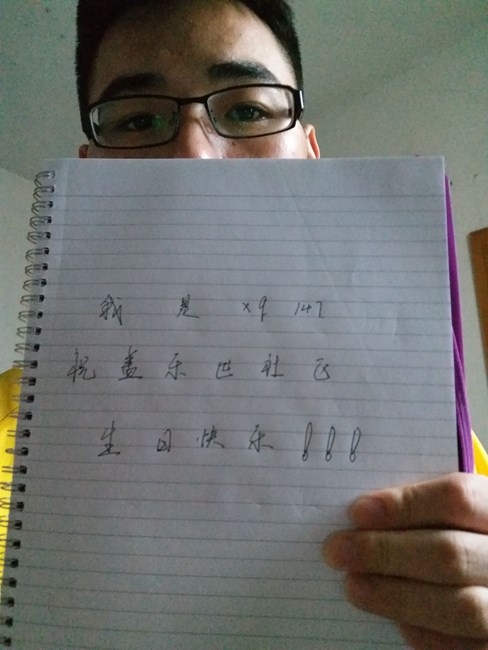 我是 x9147
祝盖乐世社区
生日快乐!!!